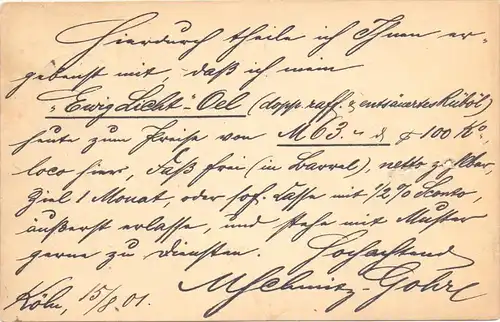 Hierdurch theile ich Ihnen er-
gebenst mit, daß ich mein
"Ewig Licht"-Oel (dopp. raff. & entsäuertes Rüböl)
heute zum Preise von M 63.- d pr 100 Ko,
loco hier, Faß frei (in Barrel), netto
Ziel 1 Monat, oder sof. Casse mit 1/2 % Sconto,
äußerst erlasse, und stehe mit Muster
gerne zu Diensten. Hochachtend
Köln, 15/8. 01. M Schmitz-Gohr